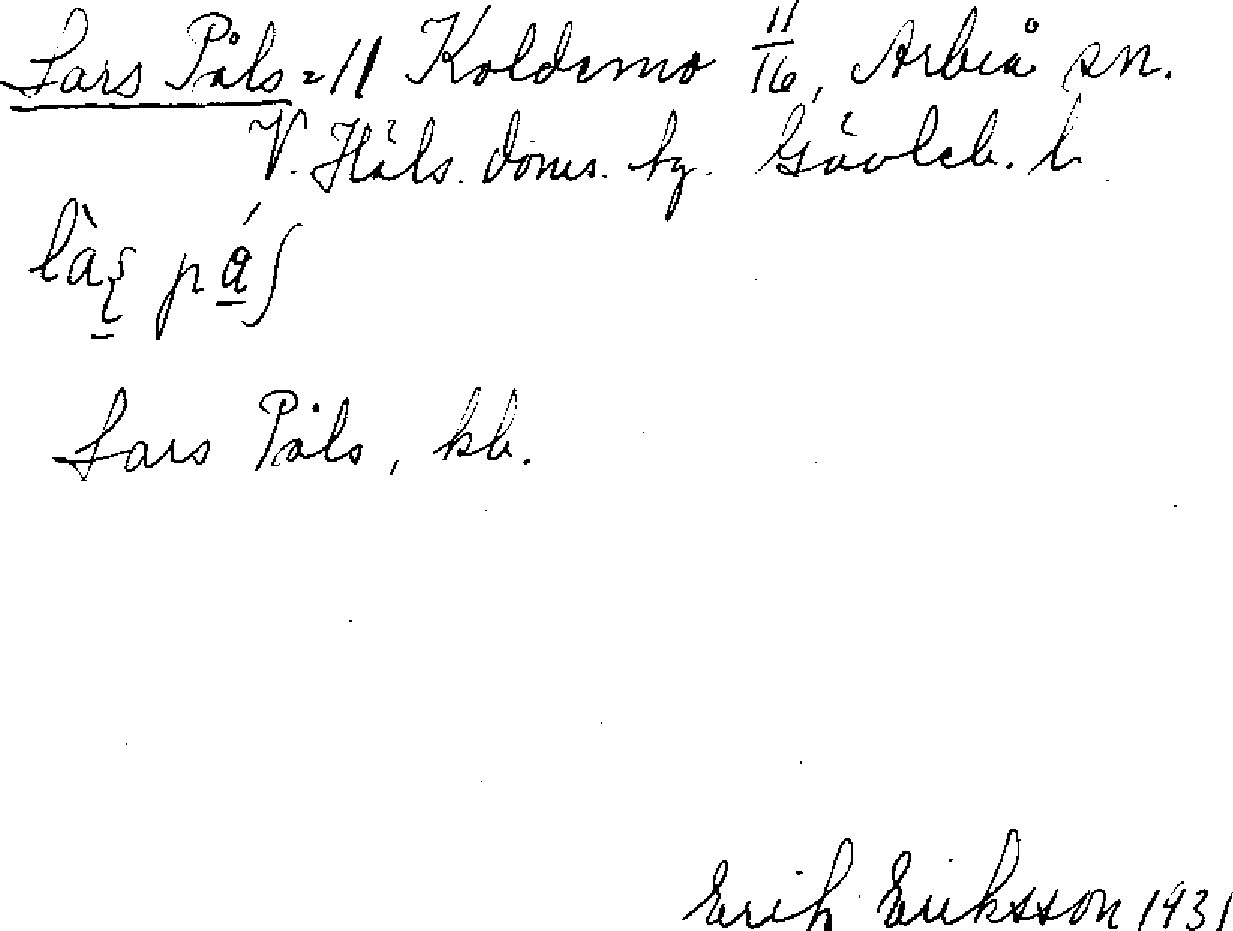 Lars Påls = 11 Koldemo 11/16, Arbrå sn.
V. Häls. doms. hg. Gävleb. l.
Lars Påls, kb.
Erik Eriksson 1931